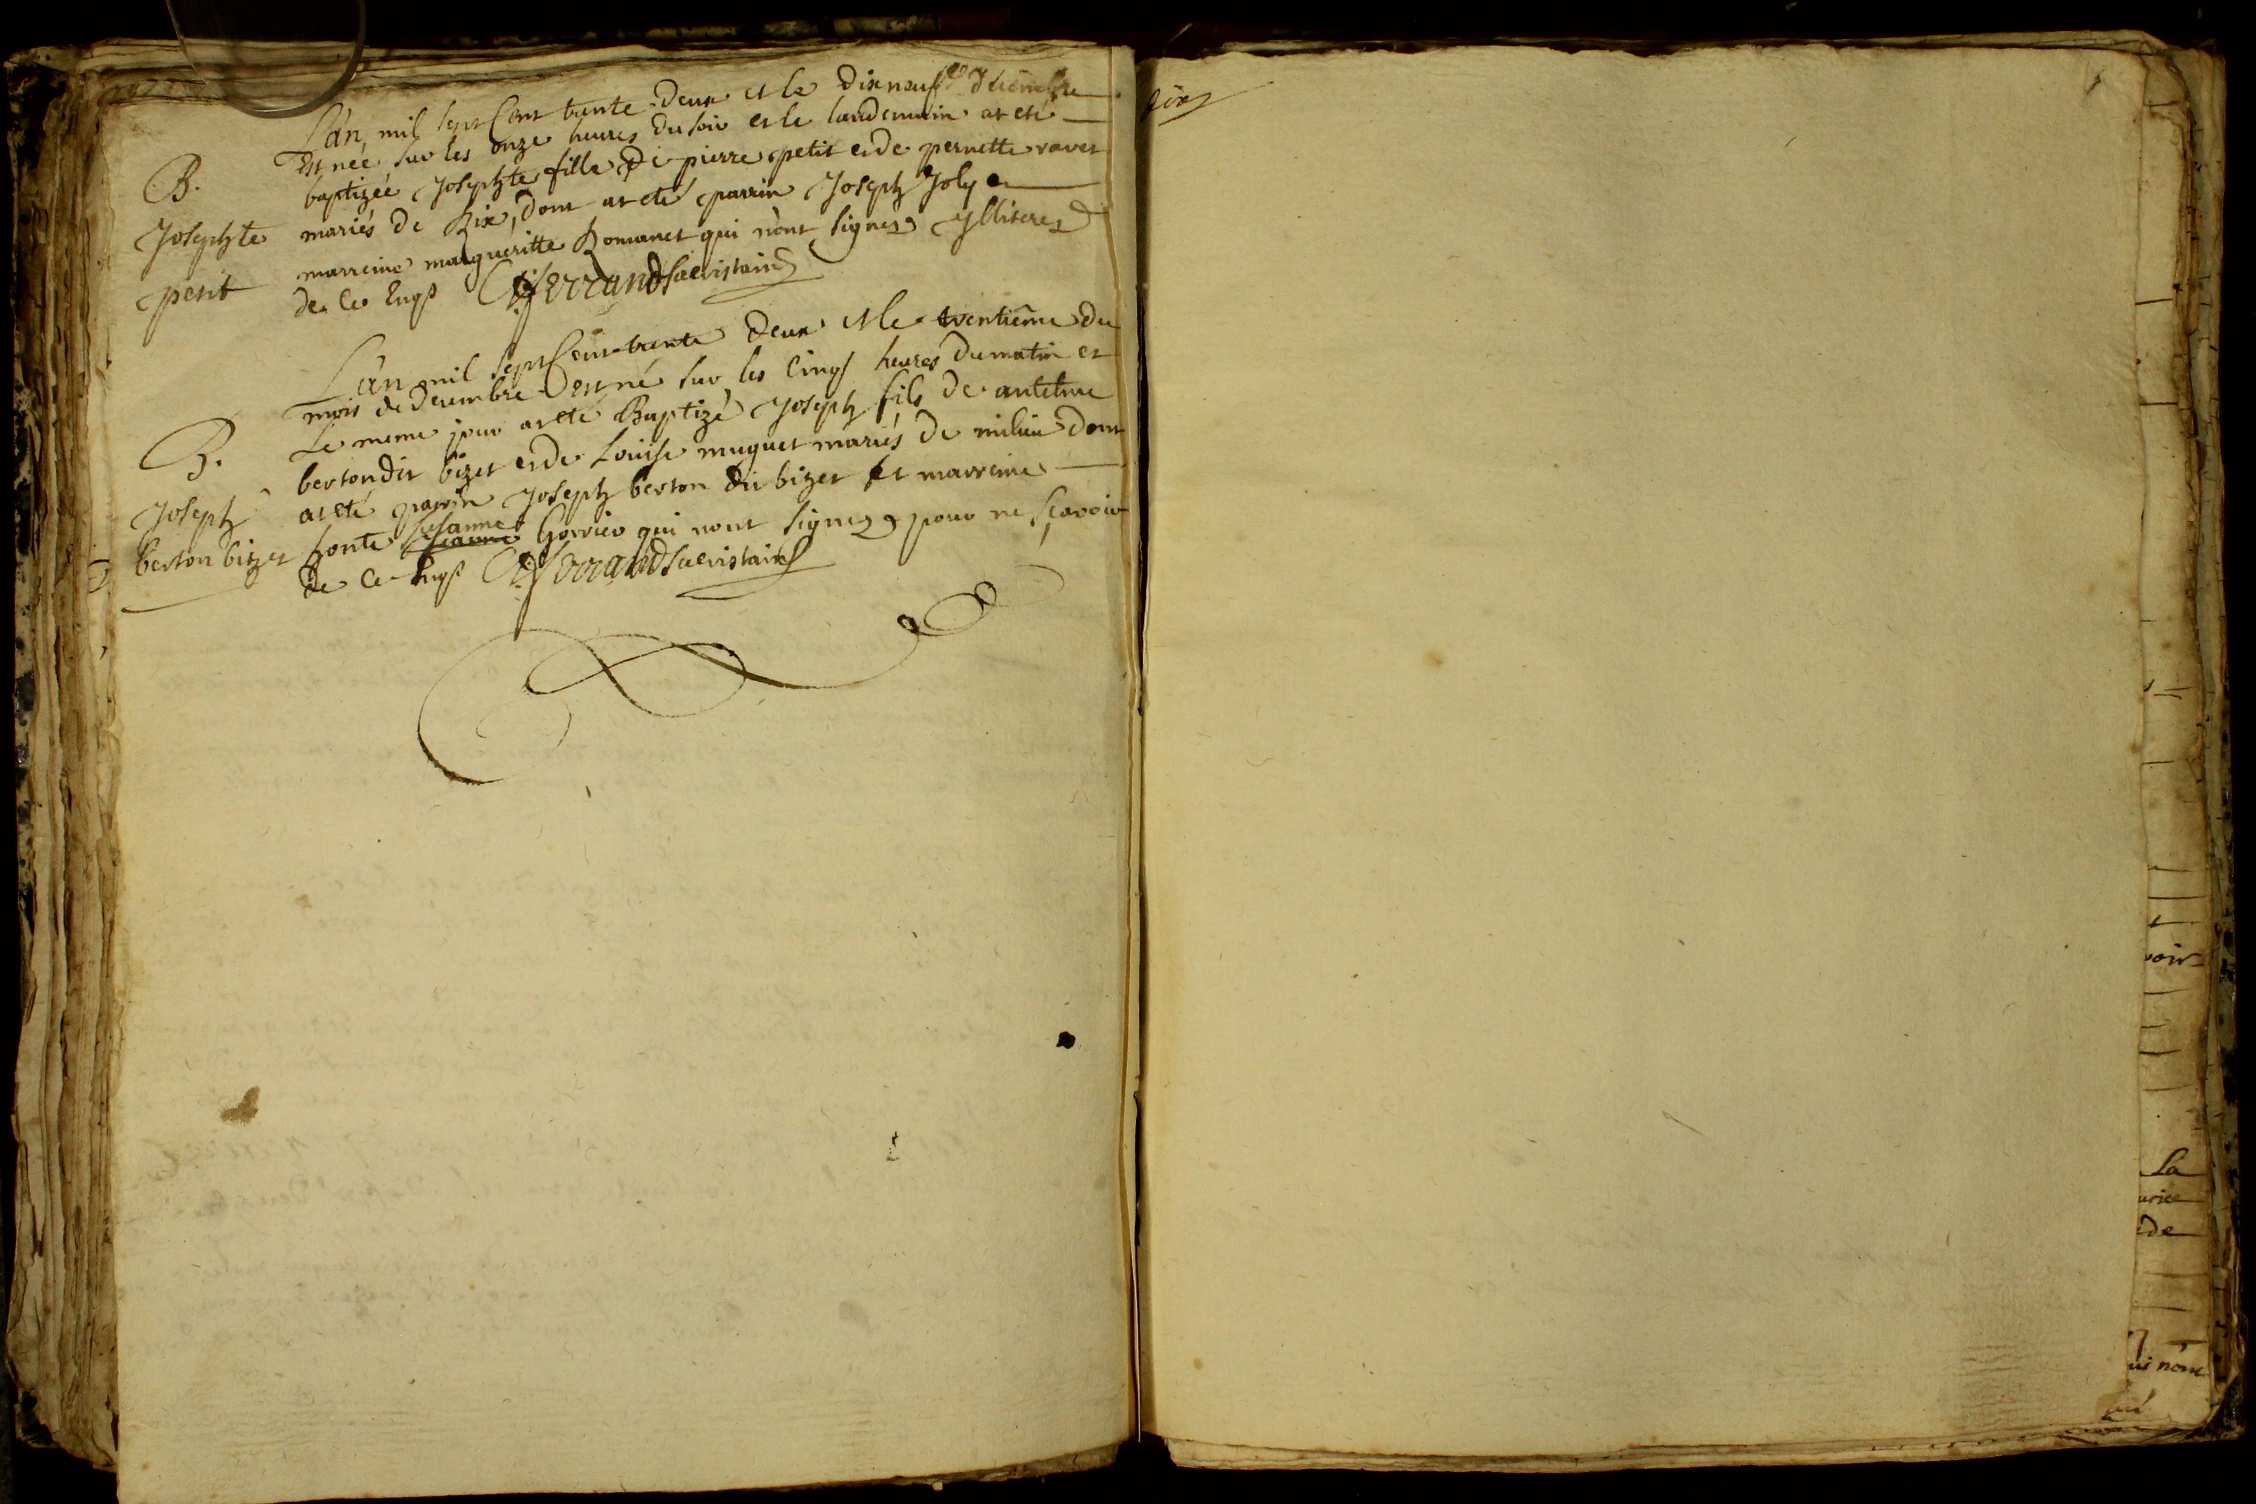 L'an mil sept Cent trente deux et le dixneuf decembre
est née sur les onze heures du soir et le landemain at eté
B. baptizée Josephte fille de pierre petit et de pernette ravet
Josephte mariés de Rix, dont at eté parrin Joseph Joly et
petit marreine margueritte Romanet qui nònt signés Illiteres
de ce Enqs Ferrand sacristain
L'an mil sept Cent trente deux et le trentiême du
mois de decembre est né sur les cinq heures du matin et
le meme jour at eté Baptizé Joseph fils de antelme
B. berton dit bizet et de Louise muguet mariés de milieu dont
Joseph at eté parrin Joseph berton dit bizet et marreine
berton bizet honte susanne Gorrier qui nont signes pour ne sçavoir
de ce Enqs Ferrand sacristain
dix
voir
La
ede
ui nònt